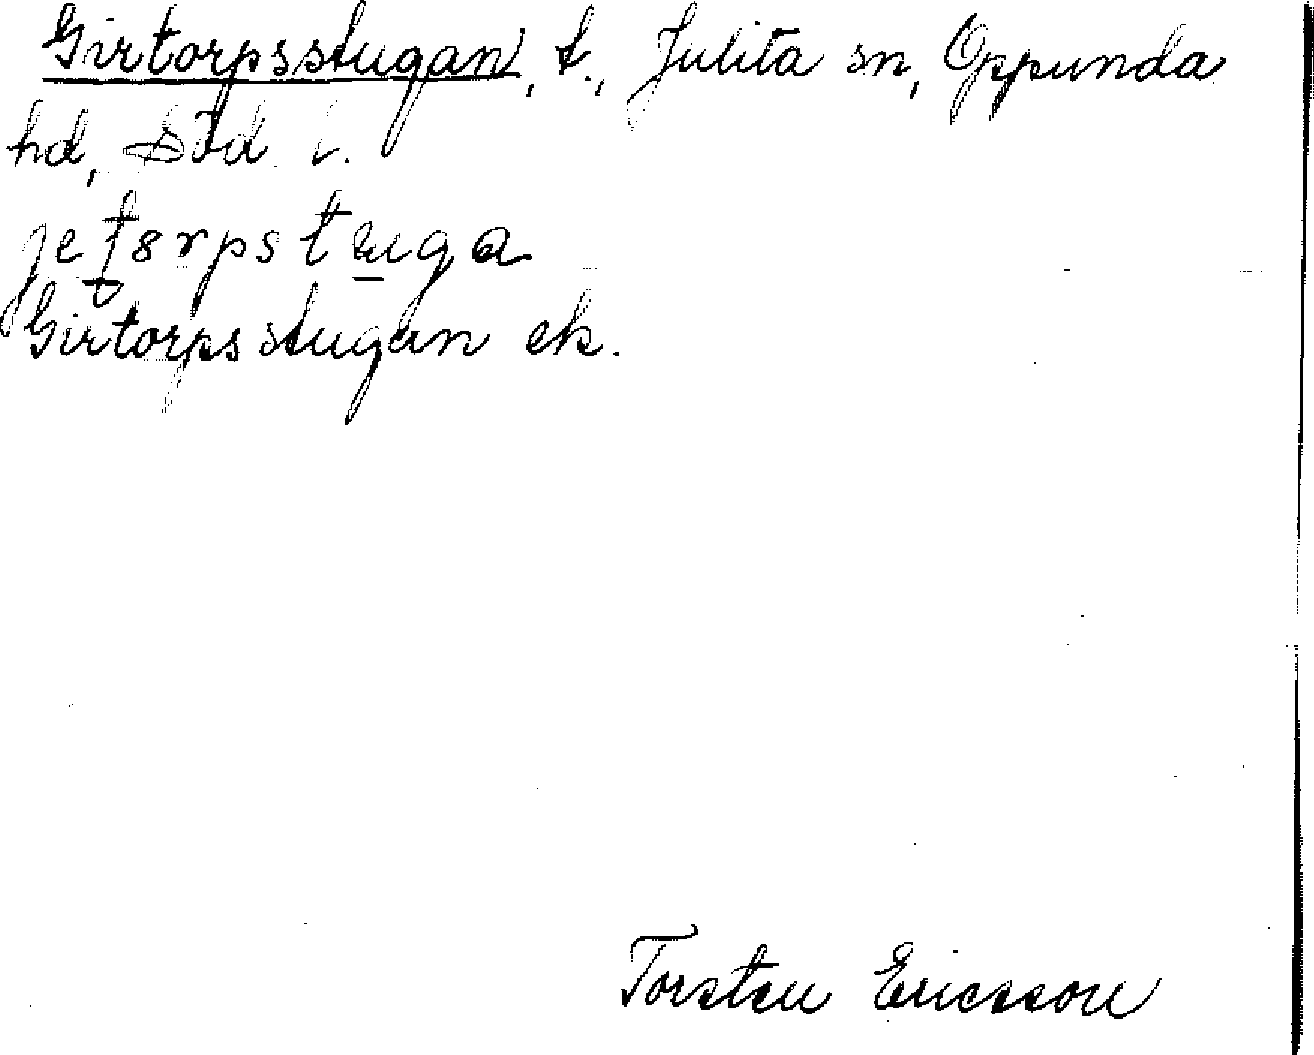 Girtorpsstugan, t., Julita sn, Oppunda
hd, Söd. l.
Girtorpsstugan ek.
Torsten Ericsson